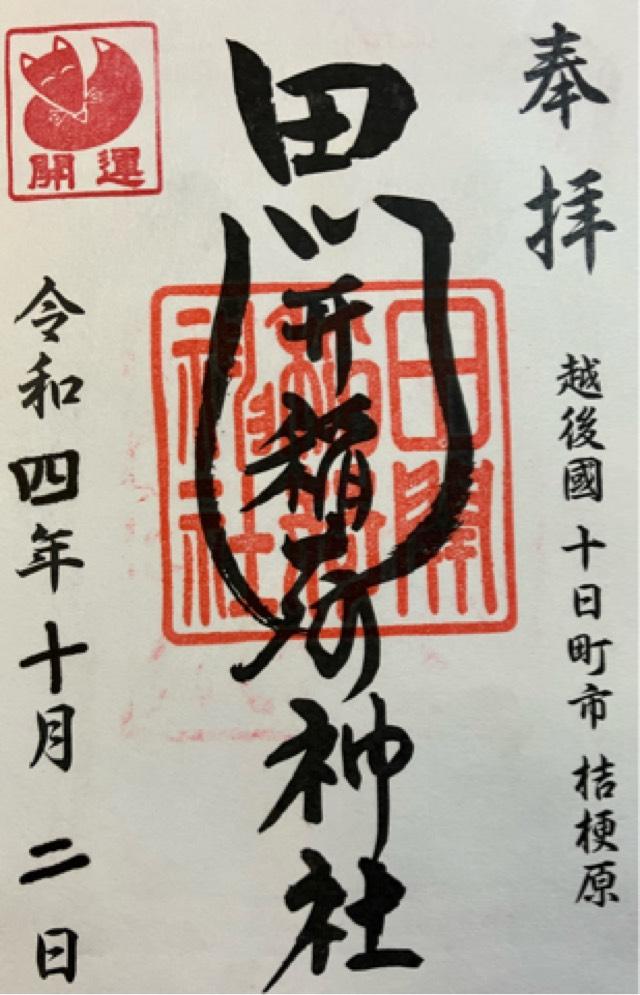 奉拝
越後國 十日町市 桔梗原
田開稲荷神社
田開
稲荷
神社
開運
令和四年十月二日